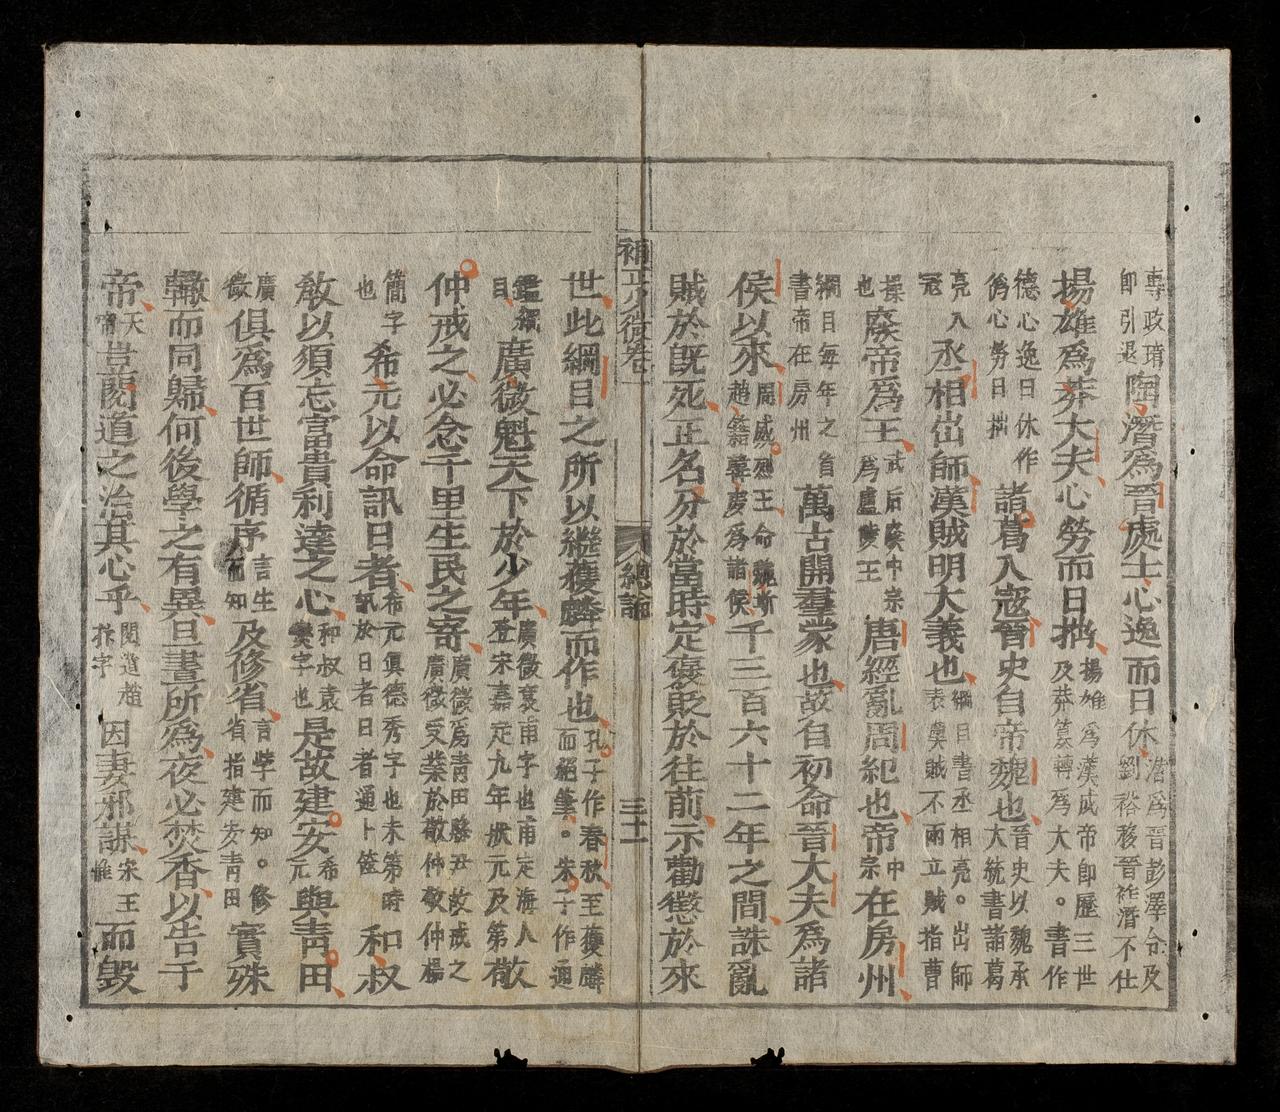 專政琦
即引退
陶潛為晉處士心逸而日休
潛為晉彭澤令及
劉裕移晉祚潛不仕
揚雄為莽大夫心勞而日拙
揚雄為漢成帝即歷三世
及莽篡轉為大夫。書作
德心逸日休作
僞心勞日拙
諸葛入寇晉史自帝魏也
晉史以魏承
大統書諸葛
亮入
寇
丞相出師漢賊明大義也
綱目書丞相亮。出師
表與賊不兩立賊指曹
操
也
廢帝為王
武后廢中宗
為盧陵王
唐經亂周紀也帝
中
宗
在房州
綱目每年之首
書帝在房州
萬古開羣蒙也故自初命晉大夫為諸
侯以來
周威烈王命魏斯
趙籍韓虔為諸侯
千三百六十二年之間誅亂
賊於既死正名分於當時定褒貶於往前示勸懲於來
補正少微卷一
總論
三十一
世此綱目之所以繼獲麟而作也
孔子作春秋至獲麟
而絕筆。朱子作通
鑑綱
目
廣微魁天下於少年
廣微袁甫字也甫定海人
登宋嘉定九年狀元及第
敬
仲戒之必念千里生民之寄
廣微為青田縣尹故戒之
廣微受業於敬仲敬仲楊
簡字
也
希元以命訊日者
希元真德秀字也未第時
訊於日者日者通卜筮
和叔
教以須忘富貴利達之心
和叔袁
燮字也
是故建安
希
元
與青田
廣
微
俱為百世師循序
言生
而知
及修省
言學而知。修
省指建安青田
實殊
轍而同歸何後學之有異旦晝所為夜必焚香以告于
帝
天
帝
豈閱道之治其心乎
閱道趙
抃字
因妻邪謀
宋王
惟
而毀